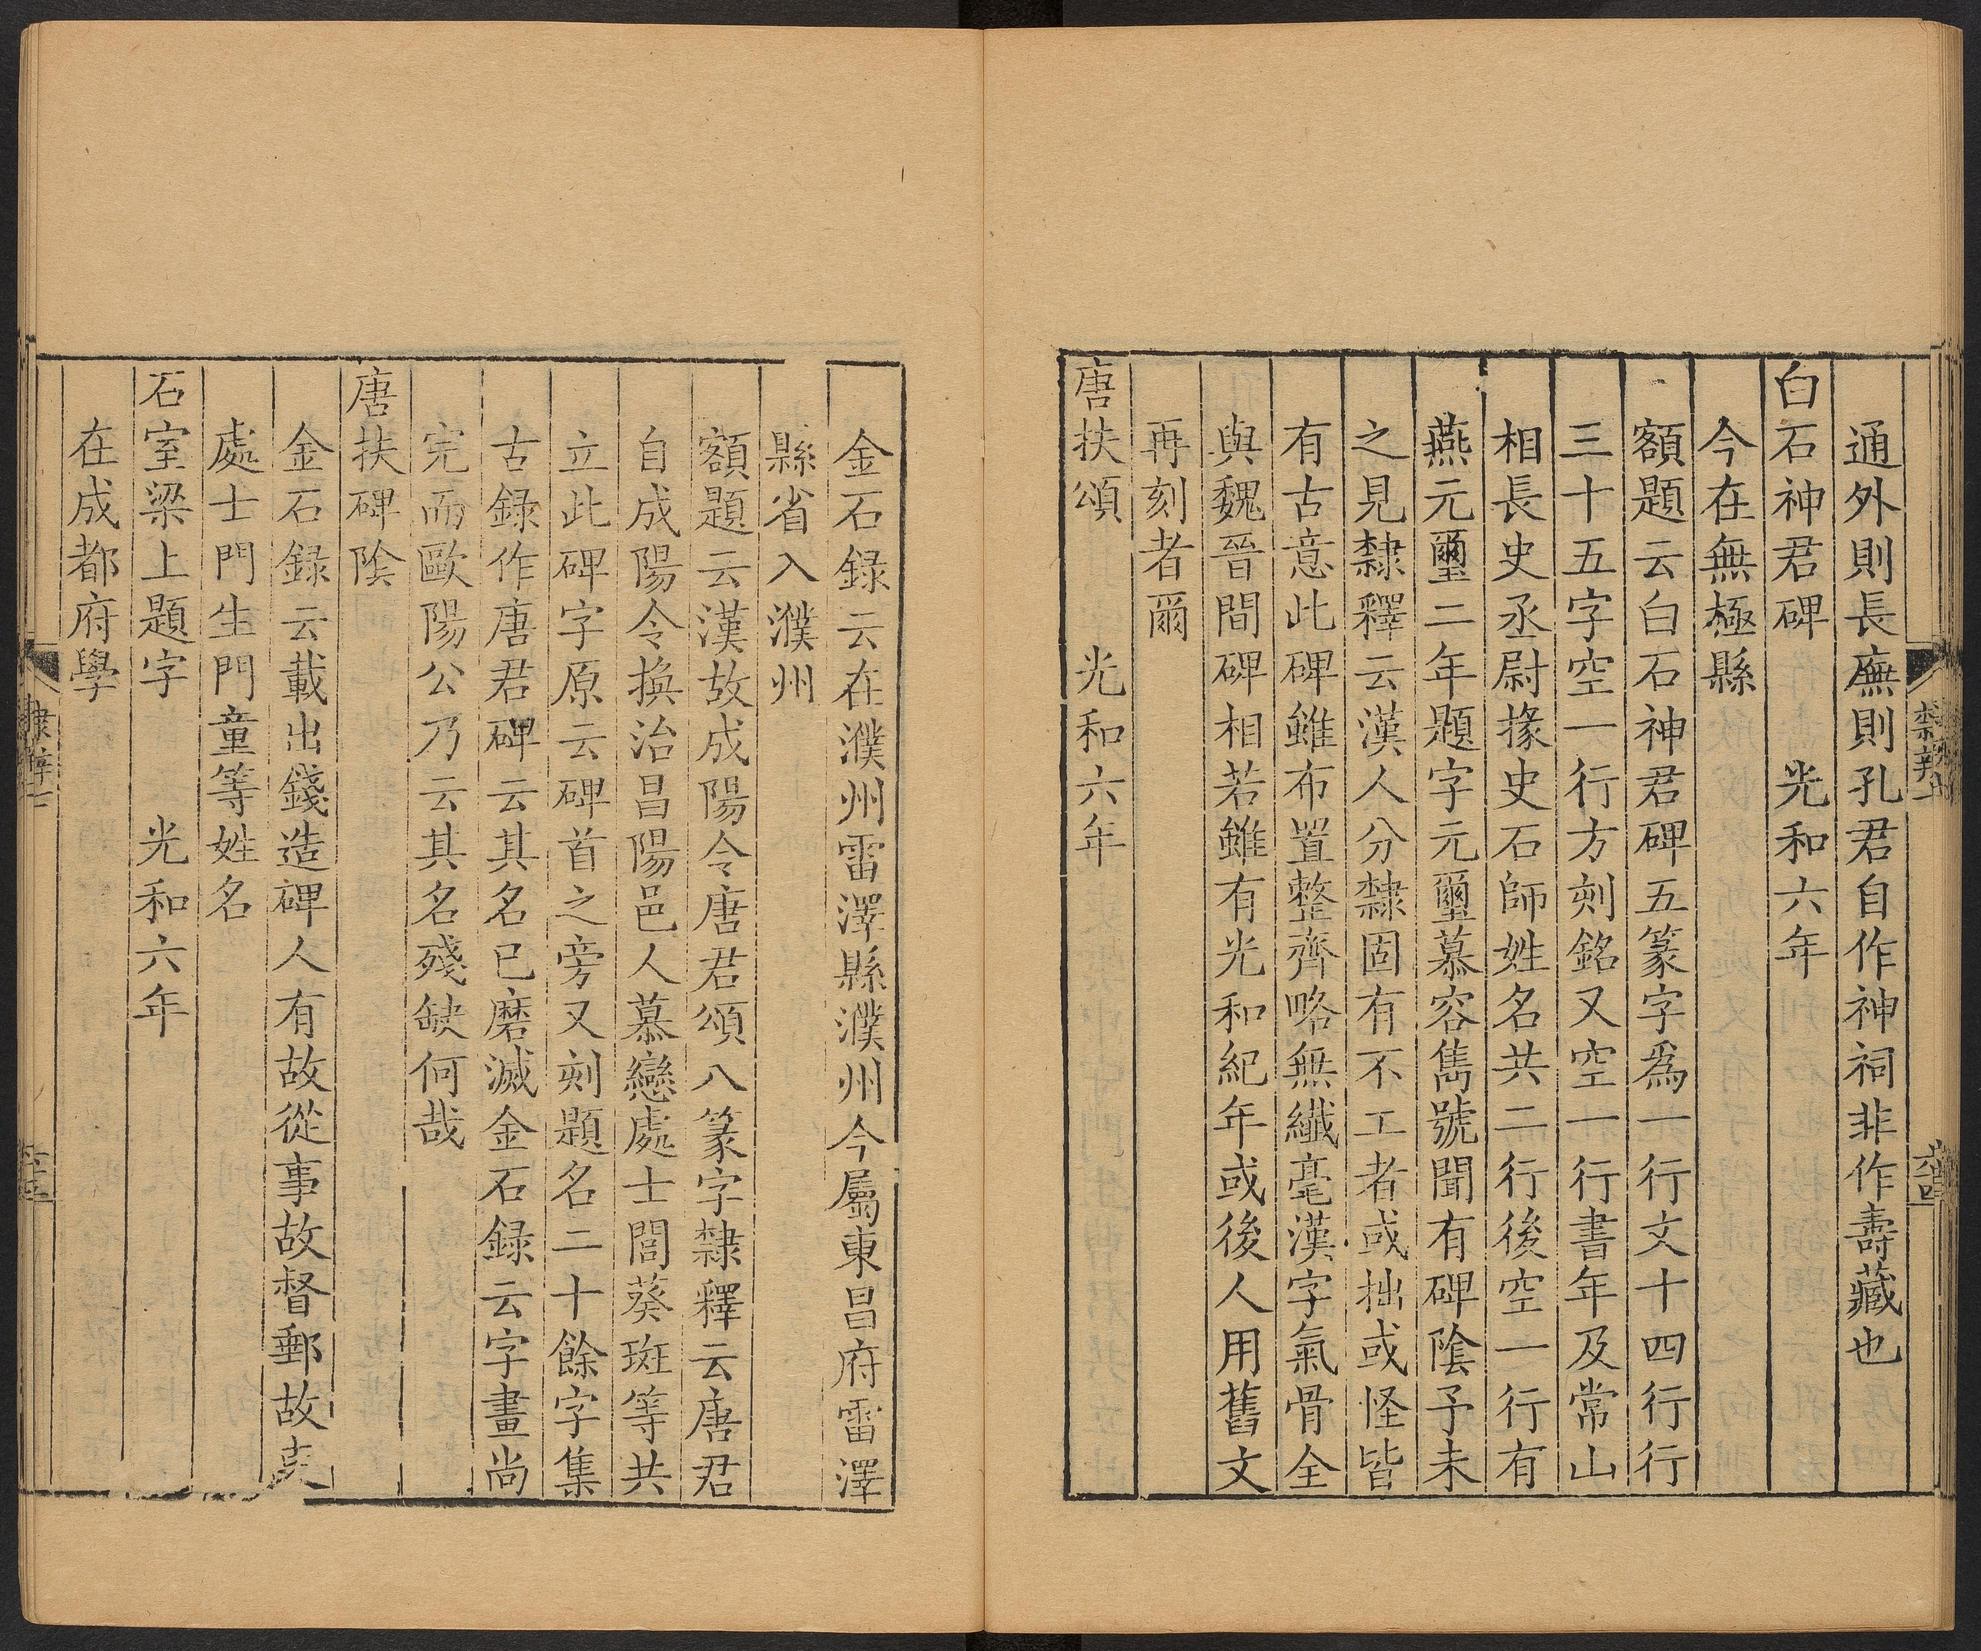 通外則長廡則孔君自作神祠非作壽藏也
白石神君碑 光和六年
今在無極縣
額題云白石神君碑五篆字爲一行文十四行行
三十五字空一行方刻銘又空一行書年及常山
相長史丞尉掾史石師姓名共二行後空一行有
燕元璽二年題字元璽慕容雋號聞有碑陰予未
之見隸釋云漢人分隸固有不工者或拙或怪皆
有古意此碑雖布置整齊略無纖毫漢字氣骨全
與魏晉間碑相若雖有光和紀年或後人用舊文
再刻者爾
唐扶頌 光和六年
金石録云在濮州雷澤縣濮州今屬東昌府雷澤
縣省入濮州
額題云漢故成陽令唐君頌八篆字隸釋云唐君
自成陽令換治昌陽邑人慕戀處士閭葵斑等共
立此碑字原云碑首之旁又刻題名二十餘字集
古録作唐君碑云其名已磨滅金石録云字畫尚
完而歐陽公乃云其名殘缺何哉
唐扶碑陰
金石録云載出錢造碑人有故從事故督郵故吏
處士門生門童等姓名
石室梁上題字 光和六年
在成都府學